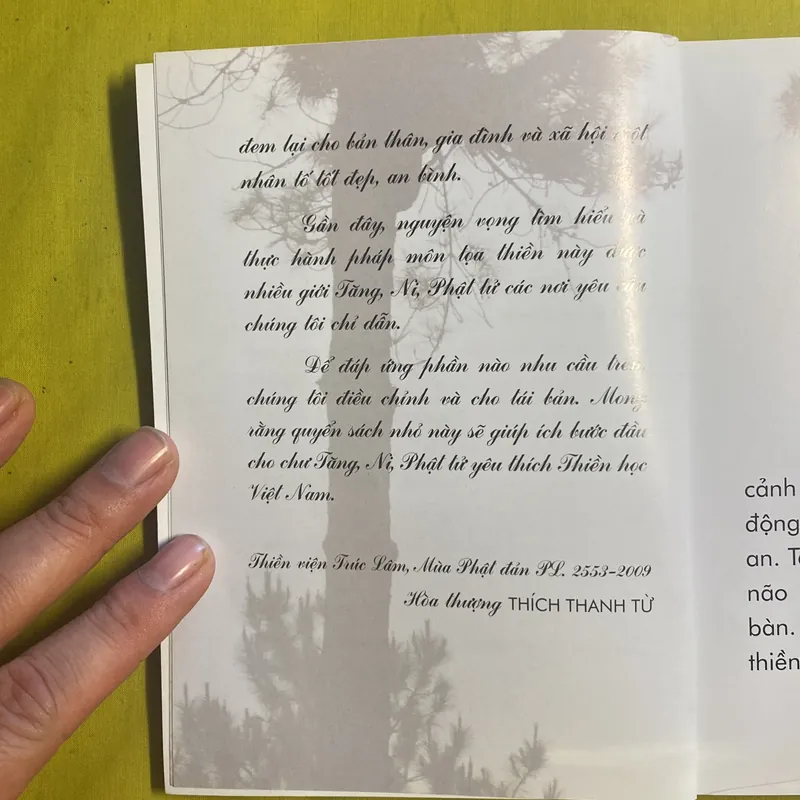 đem lại cho bản thân, gia đình và xã hội một
nhân tố tốt đẹp, an bình.
Gần đây, nguyện vọng tìm hiểu và
thực hành pháp môn tọa thiền này được
nhiều giới Tăng, Ni, Phật tử các nơi yêu cầu
chúng tôi chỉ dẫn.
Để đáp ứng phần nào nhu cầu trên,
chúng tôi điều chỉnh và cho tái bản. Mong
rằng quyển sách nhỏ này sẽ giúp ích bước đầu
cho chư Tăng, Ni, Phật tử yêu thích Thiền học
Việt Nam.
Thiền viện Trúc Lâm, Mùa Phật đản PL. 2553-2009
Hòa thượng THÍCH THANH TỪ
cảnh
động
an.
não
bàn.
thiền